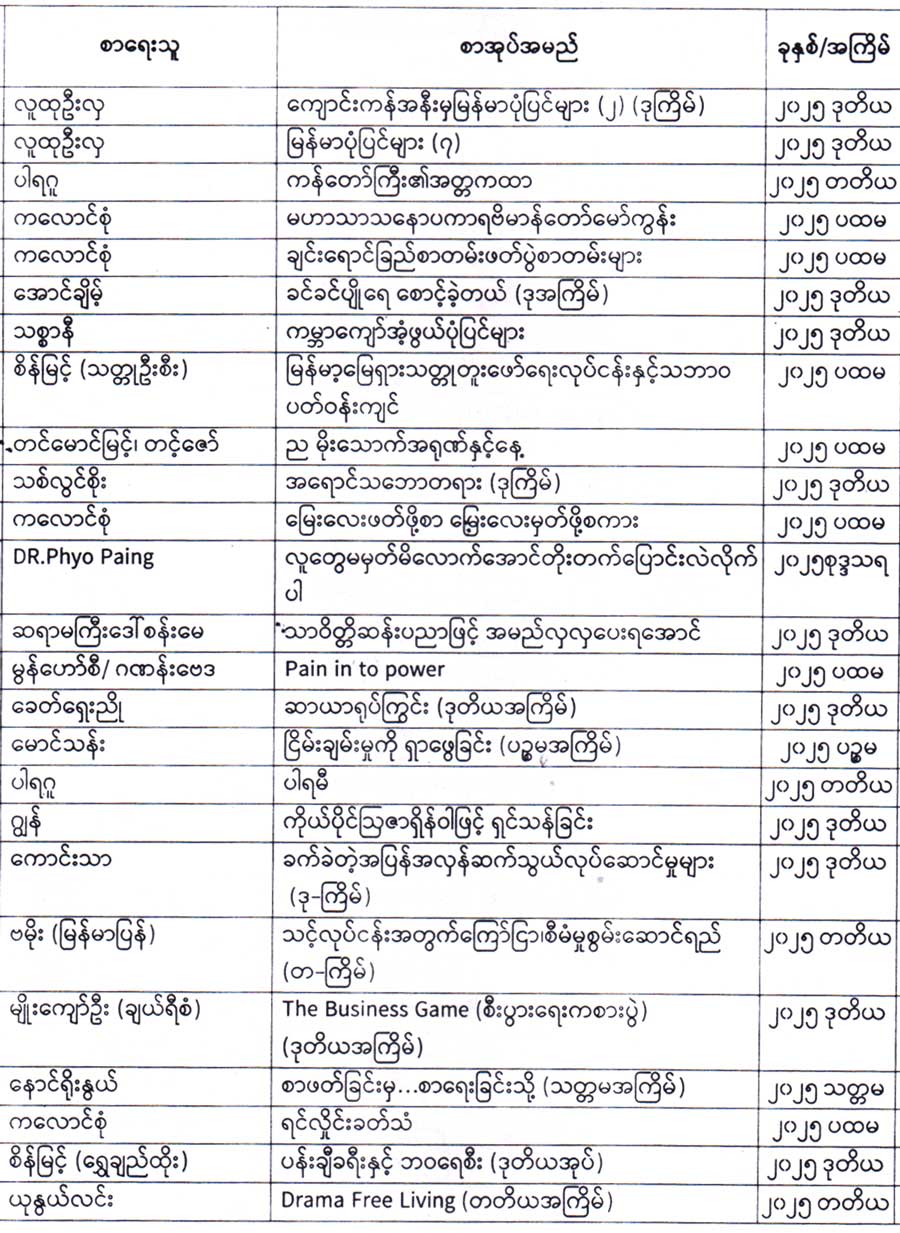 စာရေးသူ စာအုပ်အမည် ခုနှစ်/အကြိမ်
လူထုဦးလှ ကျောင်းကန်အနီးမှမြန်မာပုံပြင်များ (၂) (ဒုကြိမ်) ၂၀၂၅ ဒုတိယ
လူထုဦးလှ မြန်မာပုံပြင်များ (၇) ၂၀၂၅ ဒုတိယ
ပါရဂူ ကန်တော်ကြီး၏အတ္တကထာ ၂၀၂၅ တတိယ
ကလောင်စုံ မဟာသာသနောပကာရဗိမာန်တော်မော်ကွန်း ၂၀၂၅ ပထမ
ကလောင်စုံ ချင်းရောင်ခြည်စာတမ်းဖတ်ပွဲစာတမ်းများ ၂၀၂၅ ပထမ
အောင်ချိမ့် ခင်ခင်ပျိုရေ စောင့်ခဲ့တယ် (ဒုအကြိမ်) ၂၀၂၅ ဒုတိယ
သစ္စာနီ ကမ္ဘာကျော်အံ့ဖွယ်ပုံပြင်များ ၂၀၂၅ ဒုတိယ
စိန်မြင့် (သတ္တုဦးစီး) မြန်မာ့မြေရှားသတ္တုတူးဖော်ရေးလုပ်ငန်းနှင့်သဘာဝ ၂၀၂၅ ပထမ
ပတ်ဝန်းကျင်
တင်မောင်မြင့်၊ တင့်ဇော် ည မိုးသောက်အရုဏ်နှင့်နေ့ ၂၀၂၅ ပထမ
သစ်လွင်စိုး အရောင်သဘောတရား (ဒုကြိမ်) ၂၀၂၅ ဒုတိယ
ကလောင်စုံ မြေးလေးဖတ်ဖို့စာ မြွေးလေးမှတ်ဖို့စကား ၂၀၂၅ ပထမ
DR.Phyo Paing လူတွေမမှတ်မိလောက်အောင်တိုးတက်ပြောင်းလဲလိုက် ၂၀၂၅စုဒ္ဒသရ
ပါ
ဆရာမကြီးဒေါ်စန်းမေ သာဝိတ္တိဆန်းပညာဖြင့် အမည်လှလှပေးရအောင် ၂၀၂၅ ဒုတိယ
မွန်ဟော်စီ/ ဂဏန်းဗေဒ Pain in to power ၂၀၂၅ ပထမ
ခေတ်ရှေးညို ဆာယာရုပ်ကြွင်း (ဒုတိယအကြိမ်) ၂၀၂၅ ဒုတိယ
မောင်သန်း ငြိမ်းချမ်းမှုကို ရှာဖွေခြင်း (ပဉ္စမအကြိမ်) ၂၀၂၅ ပဉ္စမ
ပါရဂူ ပါရမီ ၂၀၂၅ တတိယ
ဂျွန် ကိုယ်ပိုင်ဩဇာရှိန်ဝါဖြင့် ရှင်သန်ခြင်း ၂၀၂၅ ဒုတိယ
ကောင်းသာ ခက်ခဲတဲ့အပြန်အလှန်ဆက်သွယ်လုပ်ဆောင်မှုများ ၂၀၂၅ ဒုတိယ
(ဒု-ကြိမ်)
ဗမိုး (မြန်မာပြန်) သင့်လုပ်ငန်းအတွက်ကြော်ငြာ၊စီမံမှုစွမ်းဆောင်ရည် ၂၀၂၅ တတိယ
(တ-ကြိမ်)
မျိုးကျော်ဦး (ချယ်ရီစံ) The Business Game (စီးပွားရေးကစားပွဲ) ၂၀၂၅ ဒုတိယ
(ဒုတိယအကြိမ်)
နောင်ရိုးနွယ် စာဖတ်ခြင်းမှ...စာရေးခြင်းသို့ (သတ္တမအကြိမ်) ၂၀၂၅ သတ္တမ
ကလောင်စုံ ရင်လှိုင်းခတ်သံ ၂၀၂၅ ပထမ
စိန်မြင့် (ရွှေချည်ထိုး) ပန်းချီခရီးနှင့် ဘဝရေစီး (ဒုတိယအုပ်) ၂၀၂၅ ဒုတိယ
ယုနွယ်လင်း Drama Free Living (တတိယအကြိမ်) ၂၀၂၅ တတိယ